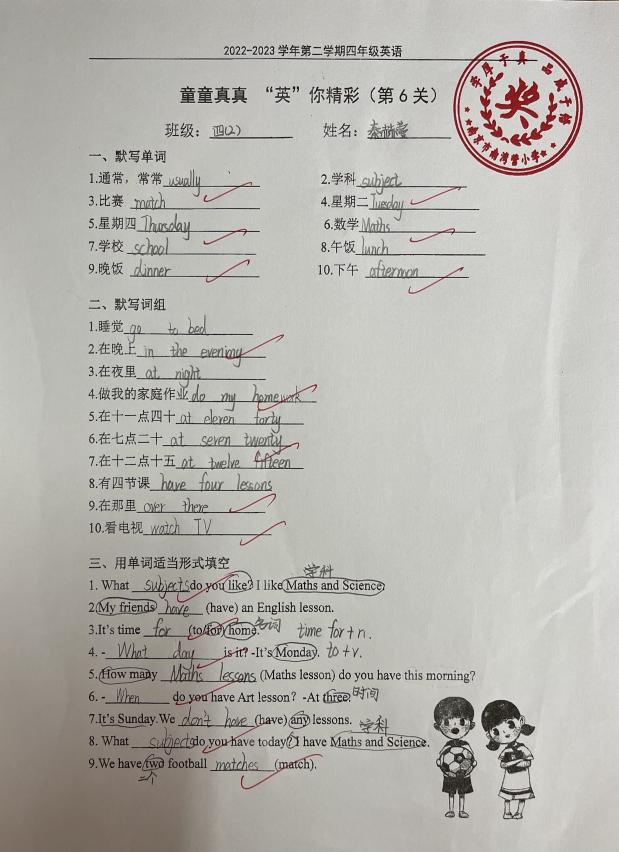 2022-2023 学年第二学期四年级英语
童童真真 “英”你精彩（第 6 关）
班级：四(2) 姓名：
学厚于真 品成于格
奖
南京市南湾营小学
一、默写单词
1.通常，常常 usually 2.学科 subject
3.比赛 match 4.星期二 Tuesday
5.星期四 Thursday 6.数学 Maths
7.学校 school 8.午饭 lunch
9.晚饭 dinner 10.下午 afternoon
二、默写词组
1.睡觉 go to bed
2.在晚上 in the evening
3.在夜里 at night
4.做我的家庭作业 do my homework
5.在十一点四十 at eleven forty
6.在七点二十 at seven twenty
7.在十二点十五 at twelve fifteen
8.有四节课 have four lessons
9.在那里 over there
10.看电视 watch TV
三、用单词适当形式填空
学科
1. What subjects do you like? I like Maths and Science.
2.My friends have (have) an English lesson.
3.It's time for (to/for) home. 名词 time for+n.
4. - What day is it? -It's Monday. to+v.
5.How many Maths lessons (Maths lesson) do you have this morning?
6. - When do you have Art lesson? -At three. 时间
7.It's Sunday.We don't have (have) any lessons. 学科
8. What subject do you have today? I have Maths and Science.
9.We have two football matches (match).
二个